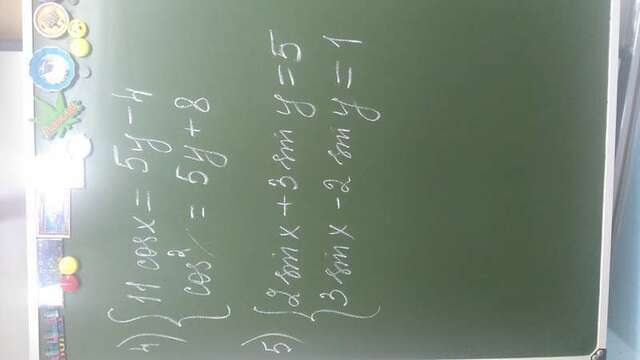 4) { 11 cosx = 5y - 4
cos² x = 5y + 8
5) { 2 sin x + 3 sin y = 5
3 sin x - 2 sin y = 1